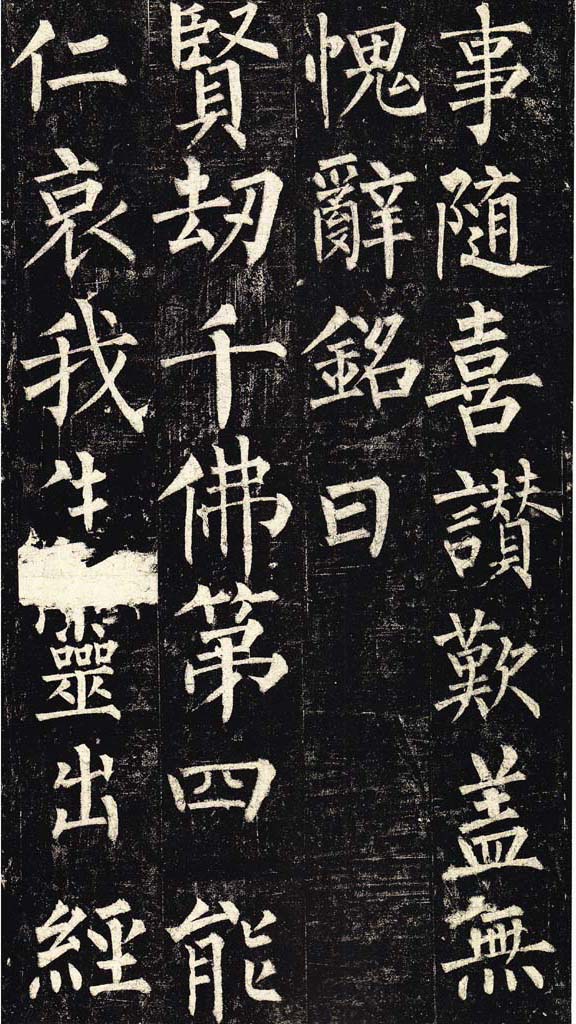 事隨喜讚歎盖無
愧辭銘曰
賢刧千佛第四能
仁哀我生靈出經